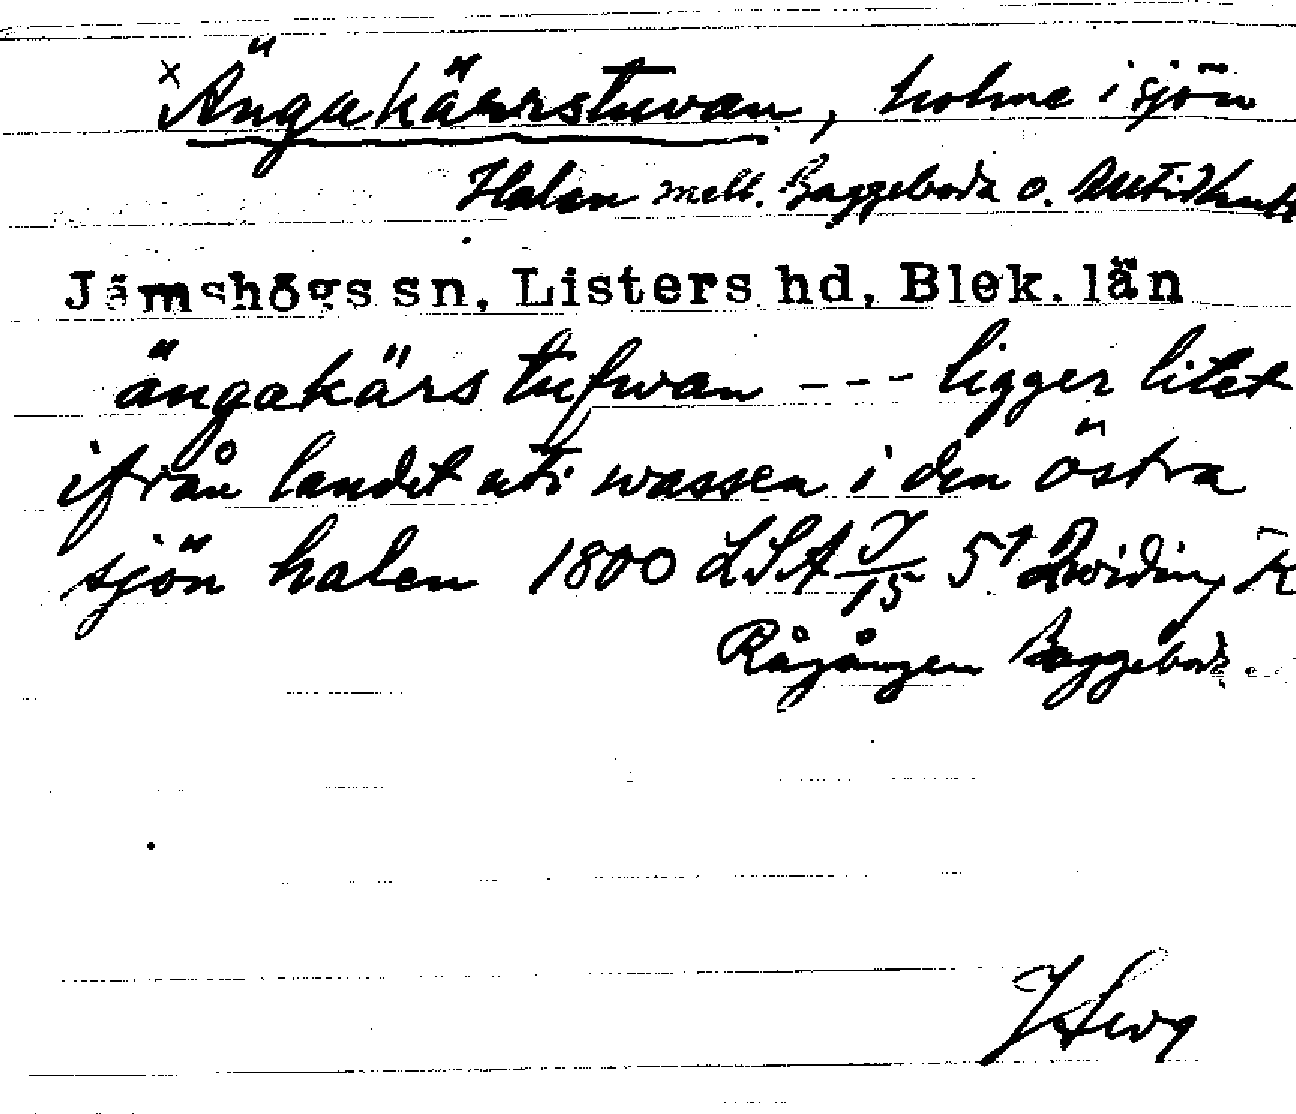 x Ängakärrstuvan, holme i sjön
Halen mell. Baggeboda o.
Jämshögs sn, Listers hd, Blek. län
ängakärs tufwan --- ligger litet
ifrån landet uti wassen i den östra
sjön halen 1800 LSA J/15 5¹
Rågången Baggeboda